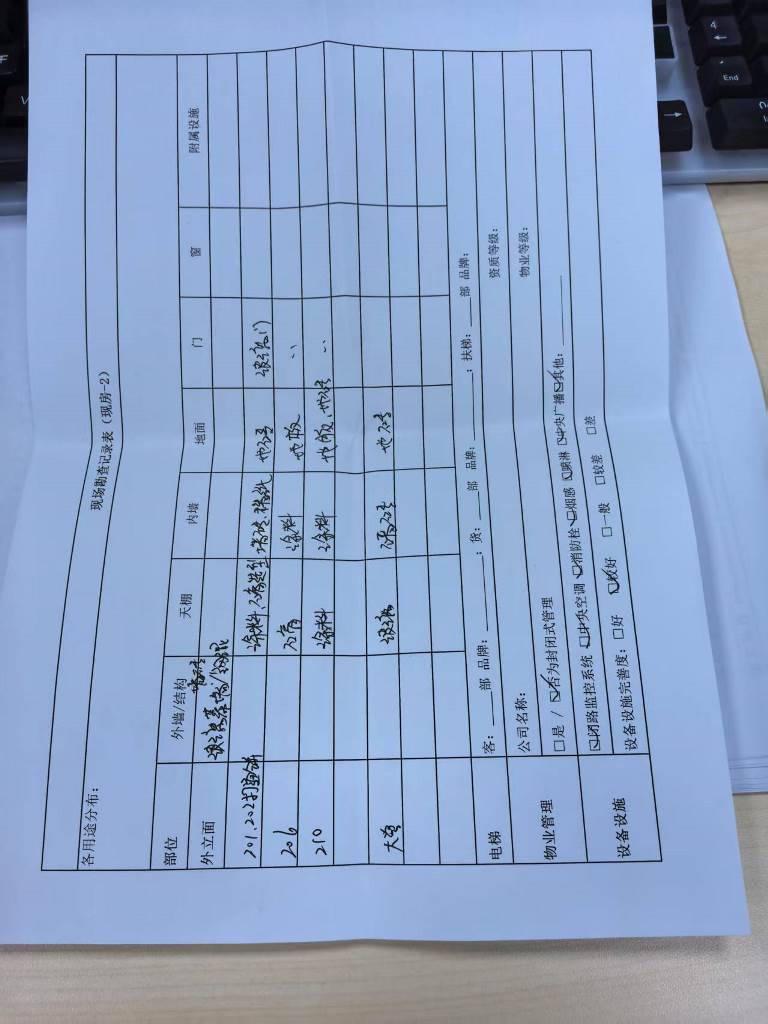 现场勘查记录表（现房-2）
各用途分布：
部位 外墙/结构 天棚 内墙 地面 门 窗 附属设施
外立面 玻璃幕墙/钢混
201、202 涂料、石膏造型 墙砖、涂料 地砖 玻璃门
206 石膏 涂料 地板 ''
210 涂料 涂料 地板、地砖 ''
大堂 玻璃 墙砖 地砖
电梯 客：___部 品牌：______；货：___部 品牌：______；扶梯：___部 品牌：
物业管理 公司名称： 资质等级：
□是 / ☑否为封闭式管理 物业等级：
设备设施 ☑闭路监控系统 ☑中央空调 ☑消防栓 ☑烟感 ☑喷淋 ☑中央广播 ☑其他：______
设备设施完善度：□好 ☑较好 □一般 □较差 □差